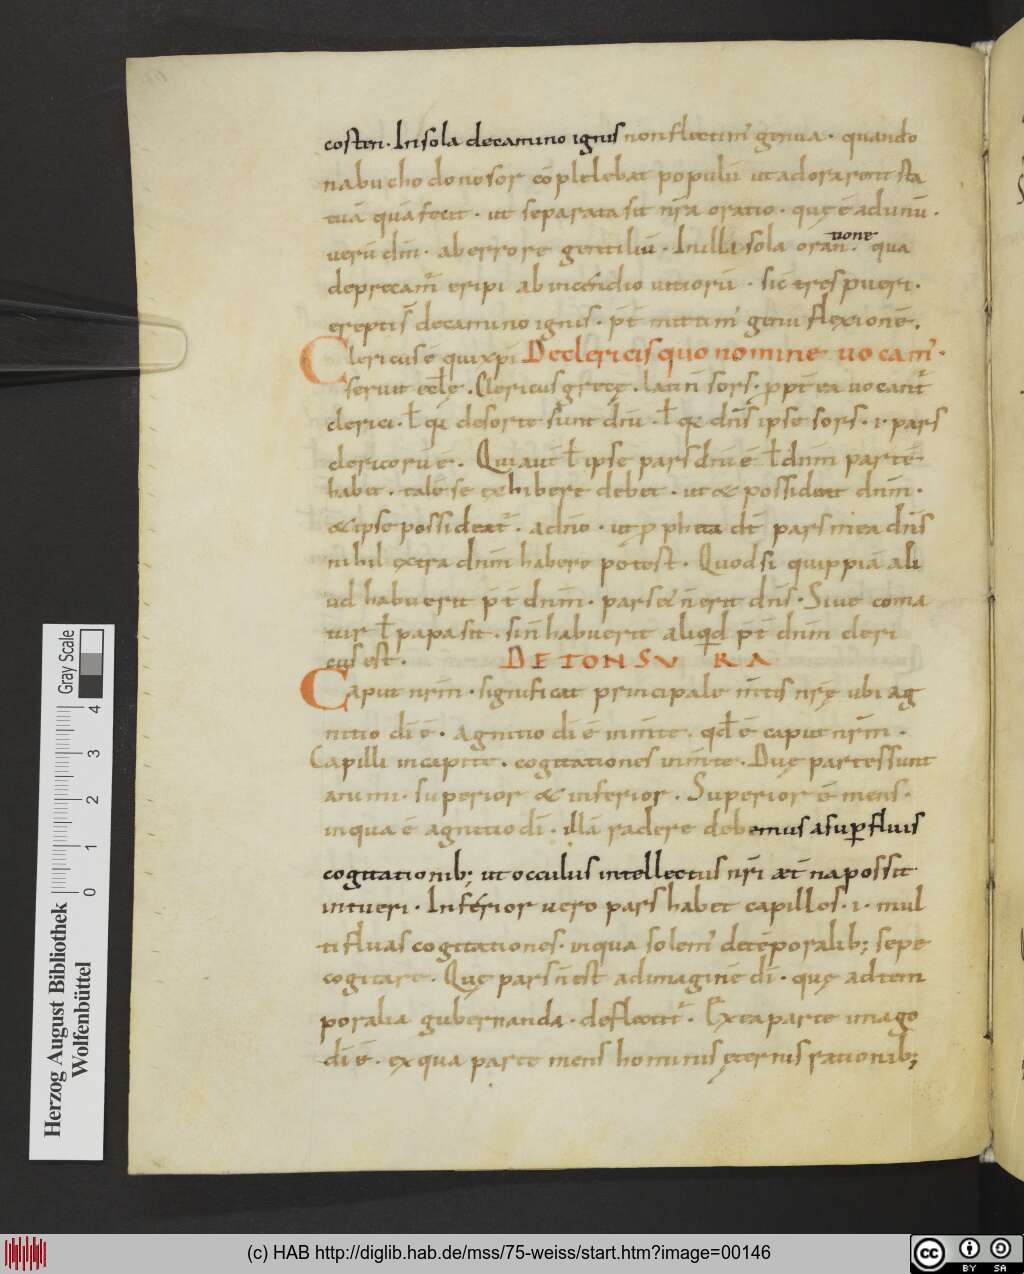 costen. In sola de camino ignis non flectim̅ genua. quando
nabuchodonosor co̅plelebat populu̅ ut adorarent sta
tua̅ qua̅ fecit. ut separata sit nr̅a oratio. quę e̅ adunu̅.
ueru̅ dm̅. ab errore gentiliu̅. In illa sola oran̅. qua
tione
deprecam̅ eripi ab incendio uitioru̅. sic tres pueri.
ereptis de camino ignis. p̅t mittim̅ genu flexione̅.
Clericus e̅ qui xp̅i De clericis quo nomine uocam̅.
seruit eccl̅ę. Clericus gręcę. latin̅ sors. ppt̅ ea uocant̅
clerici. l̅ qi̅ de sorte sunt dn̅i. l̅ q̅ dn̅s ipse sors. i. pars
clericoru̅ e̅. Qui aut̅ l̅ ipse pars dn̅i e̅ l̅ dnm̅ parte̅
habet. tale̅ se exhibere debet. ut & possideat dnm̅.
& ipse possideat̅. a dn̅o. ut ppheta dt̅ pars mea dn̅s
nihil extra dnm̅ habere potest. Quod si quippia̅ ali
ud habuerit p̅t dnm̅. pars ei̅ n̅ erit dn̅s. Siue coma
tur l̅ papa sit. sin̅ habuerit aliqid p̅t dnm̅ cleri
cus est. DE TONSURA
Caput nrm̅. significat principale m̅tis nr̅ę ubi ag
nitio di̅ e̅. Agnitio di̅ e̅ in m̅te. qd̅ e̅ caput nrm̅.
Capilli in capite. cogitationes in m̅te. Duę partes sunt
animi. superior & inferior. Superior e̅ mens.
in qua e̅ agnitio di̅. illa̅ radere debemus a sup̅fluis
cogitationib; ut occulus intellectus nr̅i æt̅na possit
intueri. Inferior uero pars habet capillos. i. mul
tifluas cogitationes. in qua solem̅ de te̅poralib; sepe
cogitare. Quę pars n̅ est ad imagine̅ di̅. quę ad tem
poralia gubernanda. deflectit̅. Ex ea parte imago
di̅ e̅. ex qua parte mens hominis ęternis rationib;
Herzog August Bibliothek
Wolfenbüttel
0 1 2 3 4
Gray Scale
(c) HAB http://diglib.hab.de/mss/75-weiss/start.htm?image=00146
cc BY SA